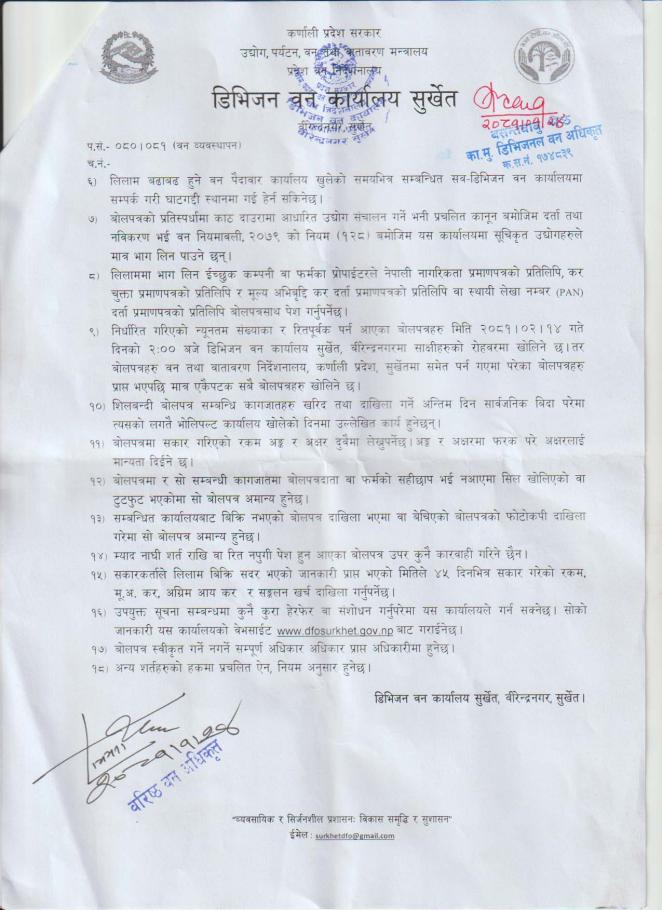 कर्णाली प्रदेश सरकार
उद्योग, पर्यटन, वन तथा वातावरण मन्त्रालय
प्रदेश वन निर्देशनालय
डिभिजन वन कार्यालय सुर्खेत
वीरेन्द्रनगर, सुर्खेत
का.मु. डिभिजनल वन अधिकृत
क.स.नं. १७४८३९
प.सं.- ०८०।०८१ (वन व्यवस्थापन)
च.नं.-
६) लिलाम बढाबढ हुने वन पैदावार कार्यालय खुलेको समयभित्र सम्बन्धित सब-डिभिजन वन कार्यालयमा
सम्पर्क गरी घाटगद्दी स्थानमा गई हेर्न सकिनेछ।
७) बोलपत्रको प्रतिस्पर्धामा काठ दाउरामा आधारित उद्योग संचालन गर्ने भनी प्रचलित कानून बमोजिम दर्ता तथा
नविकरण भई वन नियमावली, २०७९ को नियम (१२८) बमोजिम यस कार्यालयमा सूचिकृत उद्योगहरुले
मात्र भाग लिन पाउने छन्।
८) लिलाममा भाग लिन ईच्छुक कम्पनी वा फर्मका प्रोपाईटरले नेपाली नागरिकता प्रमाणपत्रको प्रतिलिपि, कर
चुक्ता प्रमाणपत्रको प्रतिलिपि र मूल्य अभिबृद्दि कर दर्ता प्रमाणपत्रको प्रतिलिपि वा स्थायी लेखा नम्बर (PAN)
दर्ता प्रमाणपत्रको प्रतिलिपि बोलपत्रसाथ पेश गर्नुपर्नेछ।
९) निर्धारित गरिएको न्यूनतम संख्याका र रितपूर्वक पर्न आएका बोलपत्रहरु मिति २०८१।०२।१४ गते
दिनको २:०० बजे डिभिजन वन कार्यालय सुर्खेत, बीरेन्द्रनगरमा साक्षीहरुको रोहवरमा खोलिने छ। तर
बोलपत्रहरु वन तथा वातावरण निर्देशनालय, कर्णाली प्रदेश, सुर्खेतमा समेत पर्न गएमा परेका बोलपत्रहरु
प्राप्त भएपछि मात्र एकैपटक सबै बोलपत्रहरु खोलिने छ।
१०) शिलबन्दी बोलपत्र सम्बन्धि कागजातहरु खरिद तथा दाखिला गर्ने अन्तिम दिन सार्वजनिक बिदा परेमा
त्यसको लगत्तै भोलिपल्ट कार्यालय खोलेको दिनमा उल्लेखित कार्य हुनेछन्।
११) बोलपत्रमा सकार गरिएको रकम अङ्क र अक्षर दुवैमा लेख्नुपर्नेछ। अङ्क र अक्षरमा फरक परे अक्षरलाई
मान्यता दिईने छ।
१२) बोलपत्रमा र सो सम्बन्धी कागजातमा बोलपत्रदाता वा फर्मको सहीछाप भई नआएमा सिल खोलिएको वा
टुटफुट भएकोमा सो बोलपत्र अमान्य हुनेछ।
१३) सम्बन्धित कार्यालयबाट बिक्रि नभएको बोलपत्र दाखिला भएमा वा बेचिएको बोलपत्रको फोटोकपी दाखिला
गरेमा सो बोलपत्र अमान्य हुनेछ।
१४) म्याद नाघी शर्त राखि वा रित नपुगी पेश हुन आएका बोलपत्र उपर कुनै कारवाही गरिने छैन।
१५) सकारकर्ताले लिलाम बिक्रि सदर भएको जानकारी प्राप्त भएको मितिले ४५ दिनभित्र सकार गरेको रकम,
मू.अ. कर, अग्रिम आय कर र सङ्कलन खर्च दाखिला गर्नुपर्नेछ।
१६) उपर्युक्त सूचना सम्बन्धमा कुनै कुरा हेरफेर वा संशोधन गर्नुपरेमा यस कार्यालयले गर्न सक्नेछ। सोको
जानकारी यस कार्यालयको वेभसाईट www.dfosurkhet.gov.np बाट गराईनेछ।
१७) बोलपत्र स्वीकृत गर्ने नगर्ने सम्पूर्ण अधिकार अधिकार प्राप्त अधिकारीमा हुनेछ।
१८) अन्य शर्तहरुको हकमा प्रचलित ऐन, नियम अनुसार हुनेछ।
डिभिजन वन कार्यालय सुर्खेत, वीरेन्द्रनगर, सुर्खेत।
वरिष्ठ वन अधिकृत
"व्यवसायिक र सिर्जनशील प्रशासनः विकास समृद्धि र सुशासन"
ईमेल : surkhetdfo@gmail.com